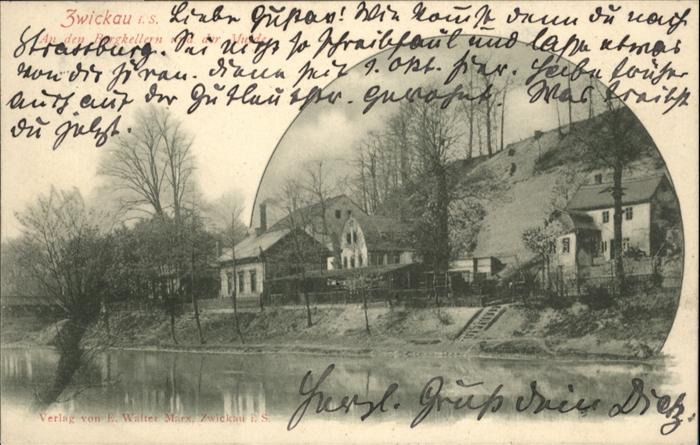 Zwickau i. S.
An den Bergkellern an der Mulde
Liebe Gustav! Wie kommst denn du nach
Strassburg. Sei nicht so schreibfaul und lasse etwas
von dir hören. diene seit 1. Okt. hier. Habe früher
auch auf der Gutleutstr. gewohnt. Was treibst
du jetzt.
Herzl. Gruß dein Dietz.
Verlag von E. Walter Marx, Zwickau i. S.